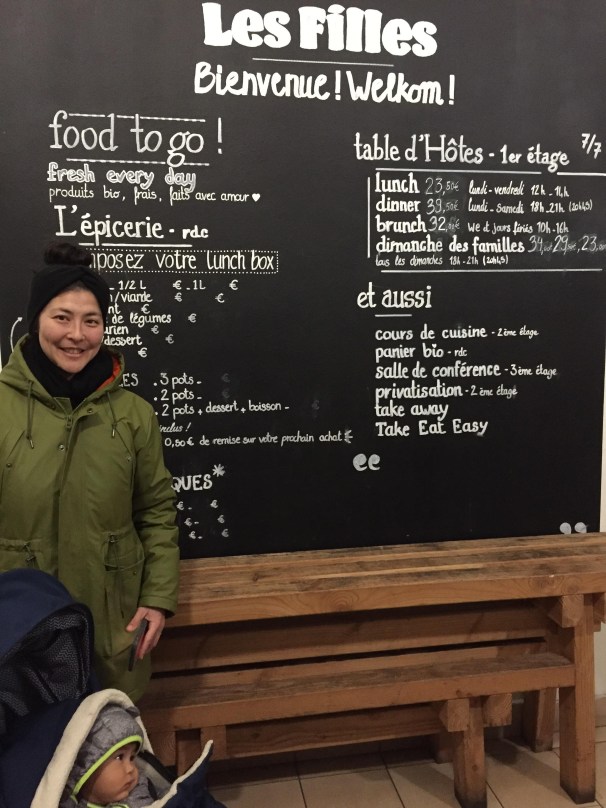 Les Filles
Bienvenue! Welkom!
food to go!
fresh every day
produits bio, frais, faits avec amour ♥
L'épicerie - rdc
mposez votre lunch box
- 1/2 L € - 1L €
/viande € €
nt € €
de légumes €
urien €
dessert €
€
LES . 3 pots - €
. 2 pots - €
. 2 pots + dessert + boisson - €
inclus !
0,50€ de remise sur votre prochain achat
QUES*
€ - €
€ - €
€ - €
table d'Hôtes - 1er étage 7/7
lunch 23,50€ lundi-vendredi 12h - 14h
dinner 39,50€ lundi-samedi 18h-21h (20h45)
brunch 32, we et jours fériés 10h-16h
dimanche des familles 34, 29, 23,
tous les dimanches 18h-21h (20h45)
et aussi
cours de cuisine - 2ème étage
panier bio - rdc
salle de conférence - 3ème étage
privatisation - 2ème étage
take away
Take Eat Easy